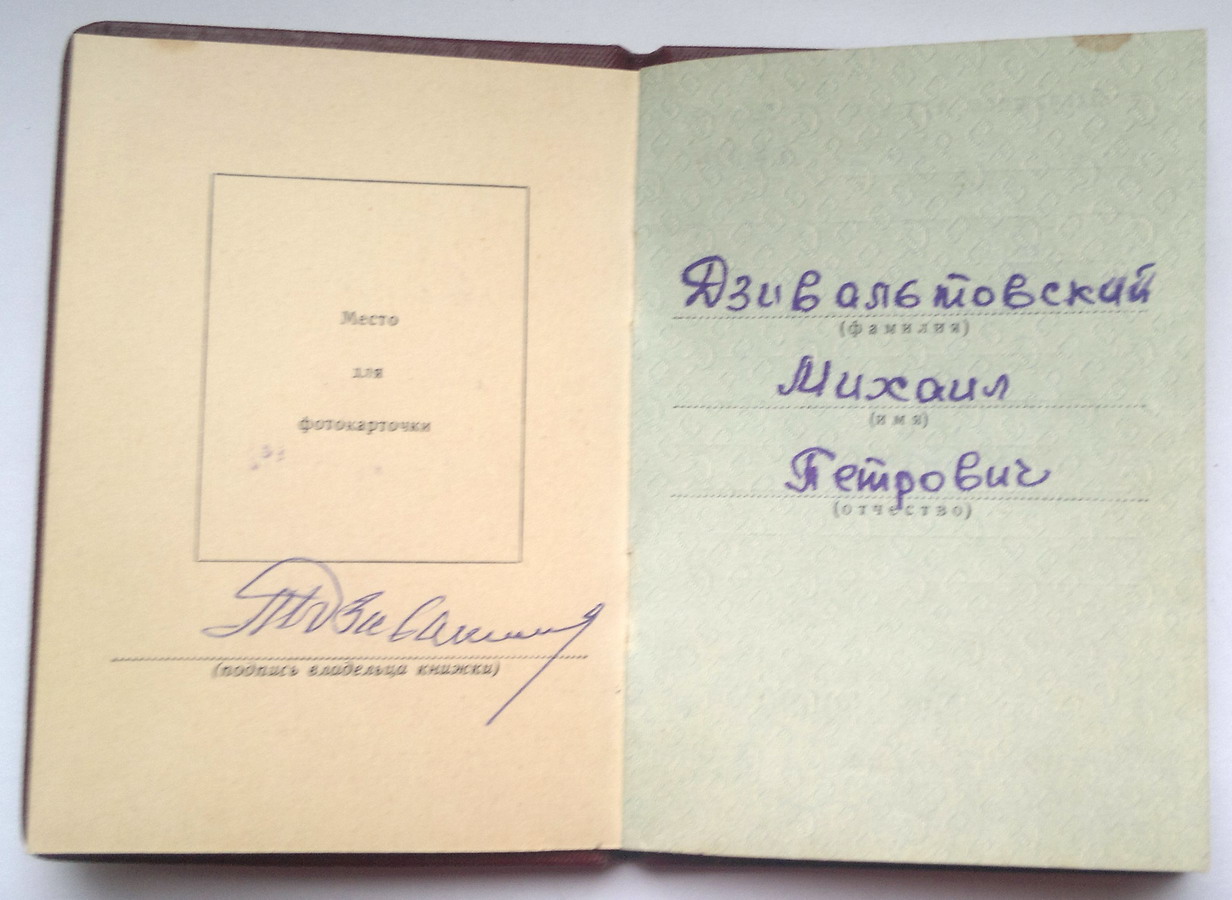 Место
для
фотокарточки
(подпись владельца книжки)
Дзивальтовский
(фамилия)
Михаил
(имя)
Петрович
(отчество)